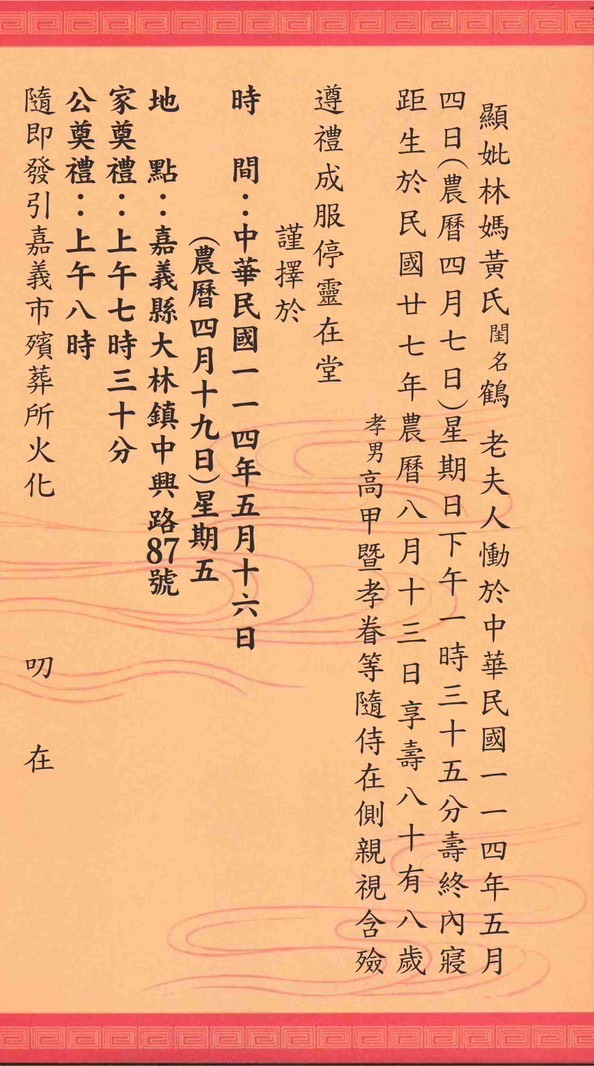 顯妣林媽黃氏閨名鶴老夫人慟於中華民國一一四年五月
四日(農曆四月七日)星期日下午一時三十五分壽終內寢
距生於民國廿七年農曆八月十三日享壽八十有八歲
孝男高甲暨孝眷等隨侍在側親視含殮
遵禮成服停靈在堂
謹擇於
時 間：中華民國一一四年五月十六日
(農曆四月十九日)星期五
地 點：嘉義縣大林鎮中興路87號
家奠禮：上午七時三十分
公奠禮：上午八時
隨即發引嘉義市殯葬所火化 叨 在